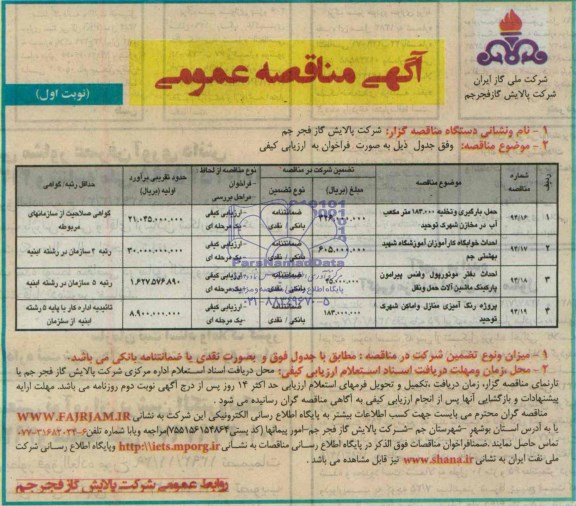 شرکت ملی گاز ایران
شرکت پالایش گاز فجر جم
آگهی مناقصه عمومی
(نوبت اول)
۱ - نام ونشانی دستگاه مناقصه گزار: شرکت پالایش گاز فجر جم
۲ - موضوع مناقصه: وفق جدول ذیل به صورت فراخوان به ارزیابی کیفی
ردیف
شماره مناقصه
موضوع مناقصه
تضمین شرکت در مناقصه
مبلغ (ریال)
نوع تضمین
نوع مناقصه از لحاظ - فراخوان - مراحل بررسی
حدود تقریبی برآورد اولیه (ریال)
حداقل رتبه/ گواهی
۱
۹۴/۱۶
حمل، بارگیری وتخلیه ۱۸۳،۰۰۰ متر مکعب آب در مخازن شهرک توحید
ضمانتنامه بانکی / نقدی
-ارزیابی کیفی -یک مرحله ای
۲۱،۰۳۵،۰۰۰،۰۰۰
گواهی صلاحیت از سازمانهای مربوطه
۲
۹۴/۱۷
احداث خوابگاه کارآموزان آموزشگاه شهید بهشتی جم
۶۰۵،۰۰۰،۰۰۰
ضمانتنامه بانکی / نقدی
-ارزیابی کیفی -یک مرحله ای
۳۰،۰۰۰،۰۰۰،۰۰۰
رتبه ۴ سازمان در رشته ابنیه
۳
۹۴/۱۸
احداث دفتر موتورپول وفنس پیرامون پارکینگ ماشین آلات حمل ونقل
ضمانتنامه بانکی / نقدی
-ارزیابی کیفی -یک مرحله ای
۱،۶۲۷،۵۷۶،۸۹۰
رتبه ۵ سازمان در رشته ابنیه
۴
۹۴/۱۹
پروژه رنگ آمیزی منازل واماکن شهرک توحید
۱۸۳،۰۰۰،۰۰۰
ضمانتنامه بانکی / نقدی
-ارزیابی کیفی -یک مرحله ای
۸،۹۰۰،۰۰۰،۰۰۰
تائیدیه اداره کار با پایه ۵ رشته ابنیه از سازمان
ParsNamadData
۰۲۱-۸۸۳۴۹۶۷۰-۵
۱ - میزان ونوع تضمین شرکت در مناقصه : مطابق با جدول فوق و بصورت نقدی یا ضمانتنامه بانکی می باشد.
۲ - محل ،زمان ومهلت دریافت اسناد استعلام ارزیابی کیفی: محل دریافت اسناد استعلام اداره مرکزی شرکت پالایش گاز فجر جم یا
تارنمای مناقصه گزار، زمان دریافت ،تکمیل و تحویل فرمهای استعلام ارزیابی حد اکثر ۱۴ روز پس از درج آگهی نوبت دوم روزنامه می باشد. مهلت ارایه
پیشنهادات و بازگشایی آنها پس از انجام ارزیابی کیفی به آگاهی مناقصه گران رسانیده می شود .
مناقصه گران محترم می بایست جهت کسب اطلاعات بیشتر به پایگاه اطلاع رسانی الکترونیکی این شرکت به نشانی WWW.FAJRJAM.IR
یا به آدرس استان بوشهر –شهرستان جم –شرکت پالایش گاز فجر جم-امور پیمانها (کد پستی ۷۵۵۱۵۶۱۵۴۸۶۴)مراجعه ویابا شماره تلفن ۶-۳۱۶۸۲۰۳۴-۰۷۷
تماس حاصل نمایند .ضمنافراخوان مناقصات فوق الذکر در پایگاه اطلاع رسانی مناقصات به نشانی http:\\iets.mporg.ir وپایگاه اطلاع رسانی شرکت
ملی نفت ایران به نشانی www.shana.ir نیز قابل مشاهده می باشد .
روابط عمومی شرکت پالایش گاز فجر جم